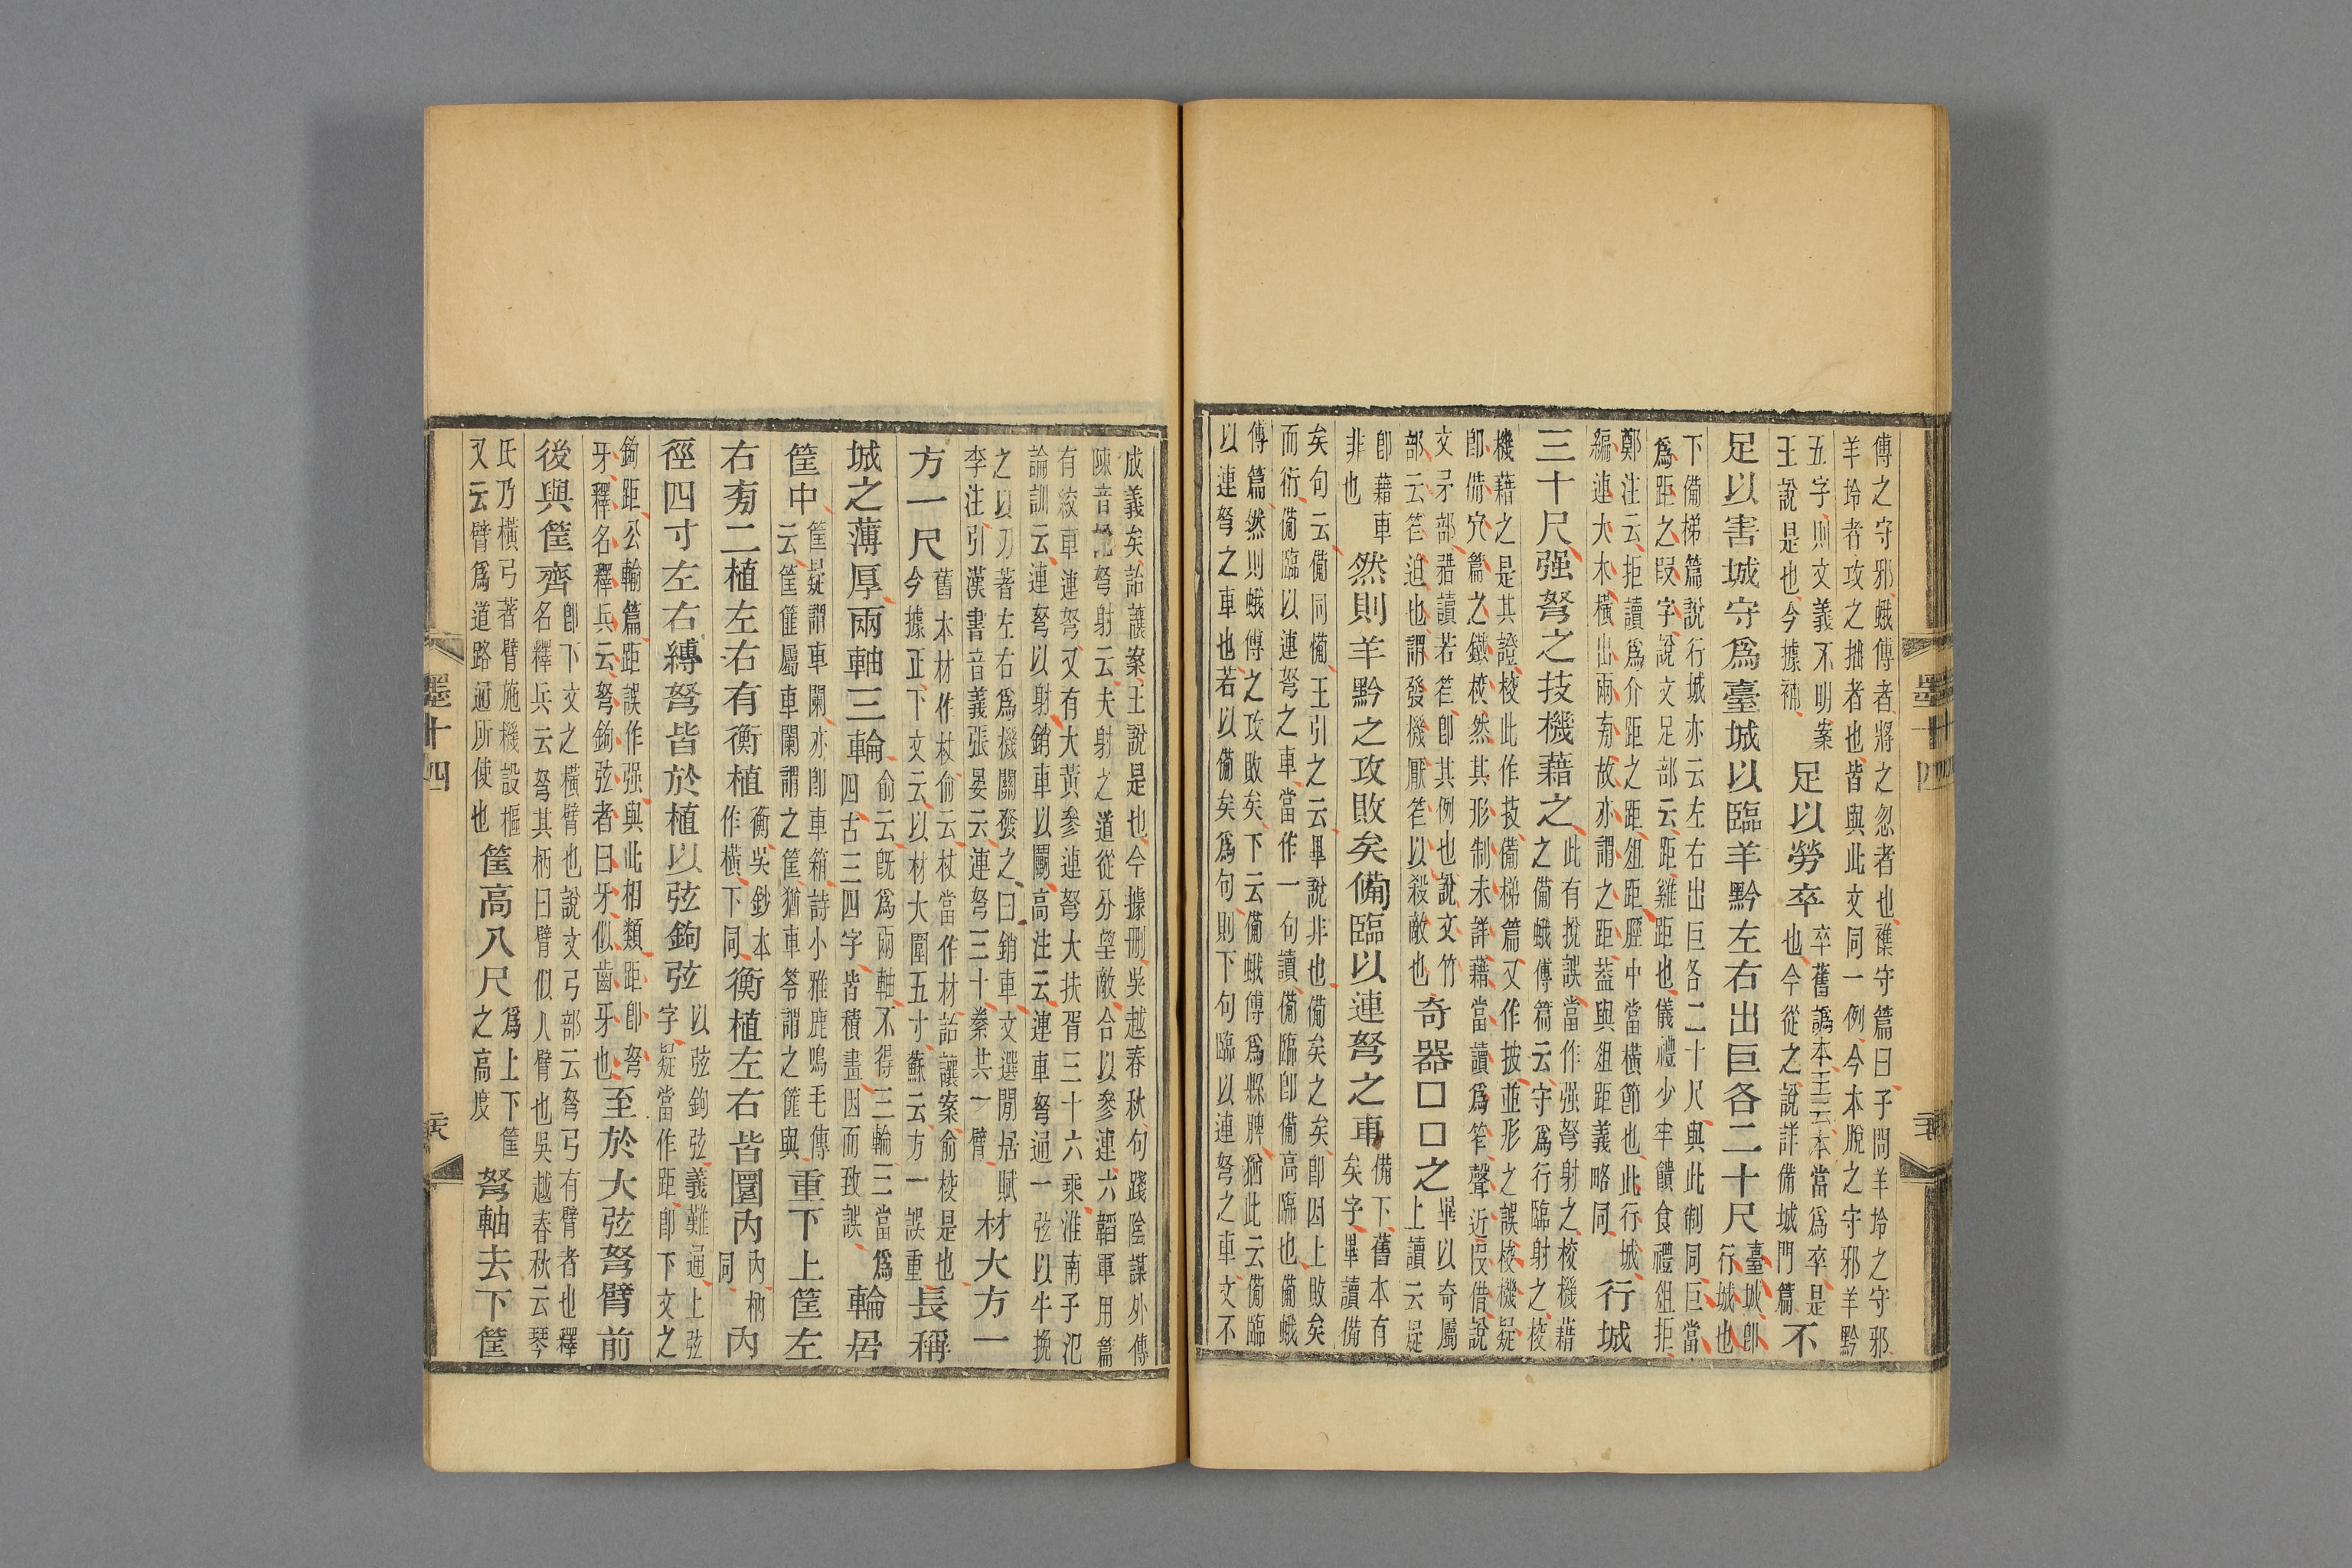 傅之守邪蛾傅者將之忽者也襍守篇曰子問羊坽之守邪
羊坽者攻之拙者也皆與此文同一例今本脫之守邪羊黔
五字則文義不明案
王說是也今據補
足以勞卒
卒舊譌本王云本當爲卒是
也今從之說詳備城門篇
不
足以害城守爲臺城以臨羊黔左右出巨各二十尺
臺城卽
行城也
下備梯篇說行城亦云左右出巨各二十尺與此制同巨當
爲距之叚字說文足部云距雞距也儀禮少牢饋食禮俎拒
鄭注云拒讀爲介距之距俎距脛中當橫節也此行城
編連大木橫出兩㫄故亦謂之距葢與俎距義略同
行城
三十尺强弩之技機藉之
此有挩誤當作强弩射之校機藉
之備蛾傅篇云守爲行臨射之校
機藉之是其證校此作技備梯篇又作披並形之誤校機疑
卽備穴篇之鐵校然其形制未詳藉當讀爲笮聲近叚借說
文矛部矠讀若笮卽其例也說文竹
部云笮迫也謂發機厭笮以殺敵也
奇器□□之
畢以奇屬
上讀云疑
卽藉車
非也
然則羊黔之攻敗矣備臨以連弩之車
備下舊本有
矣字畢讀備
矣句云備同憊王引之云畢說非也備矣之矣卽因上敗矣
而衍備臨以連弩之車當作一句讀備臨卽備高臨也備蛾
傅篇然則蛾傅之攻敗矣下云備蛾傅爲縣脾猶此云備臨
以連弩之車也若以備矣爲句則下句臨以連弩之車文不
成義矣詒讓案王說是也今據刪吳越春秋句踐陰謀外傳
陳音說弩射云夫射之道從分望敵合以參連六韜軍用篇
有絞車連弩又有大黃參連弩大扶胥三十六乘淮南子氾
論訓云連弩以射銷車以鬬高注云連車弩通一弦以牛挽
之以刃著左右爲機關發之曰銷車文選閒居賦
李注引漢書音義張晏云連弩三十絭共一臂
材大方一
方一尺
舊本材作杖俞云杖當作材詒讓案俞校是也
今據正下文云以材大圍五寸蘇云方一誤重
長稱
城之薄厚兩軸三輪
俞云旣爲兩軸不得三輪三當爲
四古三四字皆積畫因而致誤
輪居
筐中
筐疑謂車闌亦卽車箱詩小雅鹿鳴毛傳
云筐篚屬車闌謂之筐猶車笭謂之篚與
重下上筐左
右㫄二植左右有衡植
衡吳鈔本
作橫下同
衡植左右皆圜内
内枘
同
内
徑四寸左右縛弩皆於植以弦鉤弦
以弦鉤弦義難通上弦
字疑當作距卽下文之
鉤距公輸篇距誤作强與此相類距卽弩
牙釋名釋兵云弩鉤弦者曰牙似齒牙也
至於大弦弩臂前
後與筐齊
卽下文之橫臂也說文弓部云弩弓有臂者也釋
名釋兵云弩其柄曰臂似人臂也吳越春秋云琴
氏乃橫弓著臂施機設樞
又云臂爲道路通所使也
筐高八尺
爲上下筐
之高度
弩軸去下筐
墨十四